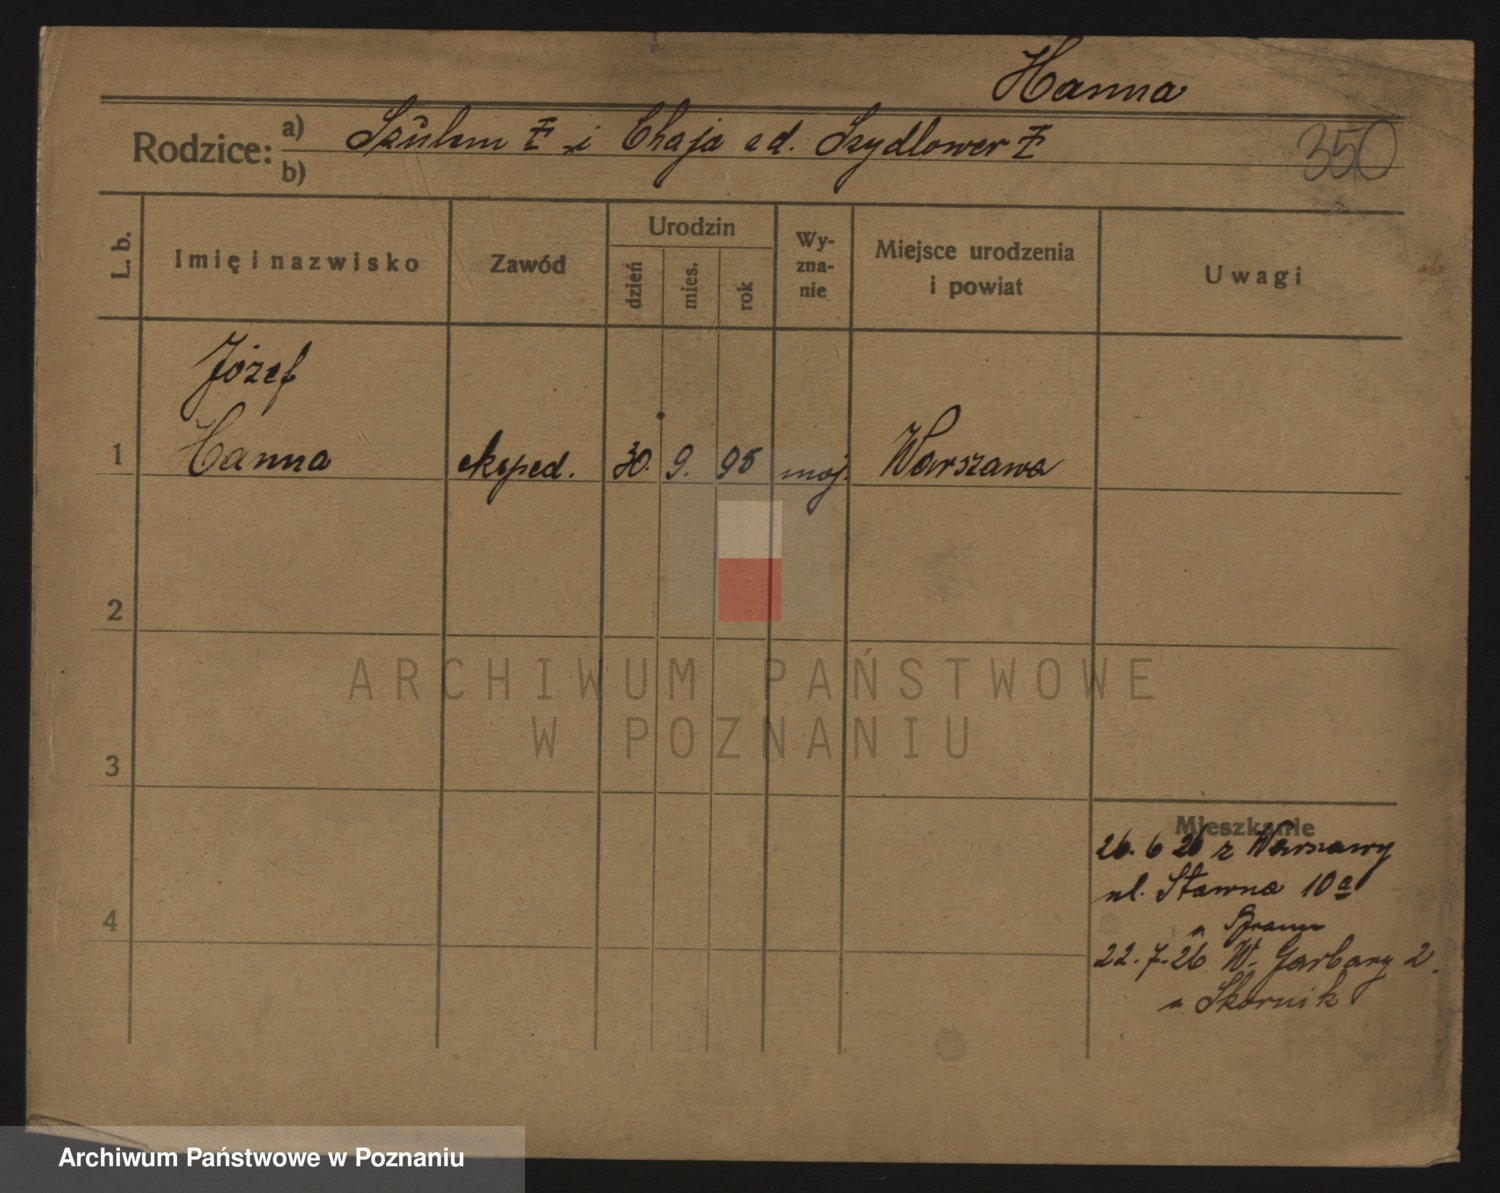 Hanna
Rodzice: a) Szulem i Chaja zd. Szydlower
b)
350
L. b. Imię i nazwisko Zawód Urodzin dzień mies. rok Wyznanie Miejsce urodzenia i powiat Uwagi
Józef
1 Hanna eksped. 30. 9. 95 moj. Warszawa
2
3
4
Mieszkanie
26. 6 26 z Warszawy
ul. Stawna 10a
u Bramn
22. 7. 26 W. Garbary 2.
u Skornik
ARCHIWUM PAŃSTWOWE
W POZNANIU
Archiwum Państwowe w Poznaniu